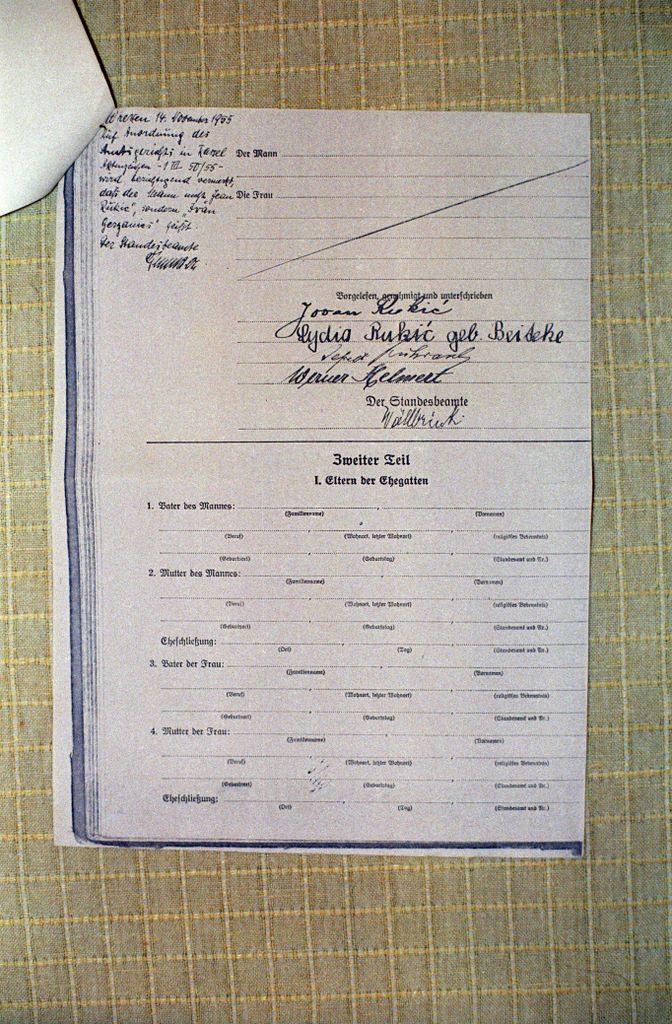 14. November 1955
Auf Anordnung des
Amtsgerichts in Kassel
Aktenzeichen - 1 III 50/55 -
wird berichtigend vermerkt,
daß der Mann nicht "Jovan
Rukić", sondern "Ivan
heißt.
Der Standesbeamte
Der Mann
Die Frau
Vorgelesen, genehmigt und unterschrieben
Jovan Rukić
Lydia Rukić geb. Beitcke
Werner Helmert
Der Standesbeamte
Zweiter Teil
I. Eltern der Ehegatten
1. Vater des Mannes:
(Familienname) (Vornamen)
(Beruf) (Wohnort, letzter Wohnort) (religiöses Bekenntnis)
(Geburtsort) (Geburtstag) (Standesamt und Nr.)
2. Mutter des Mannes:
(Familienname) (Vornamen)
(Beruf) (Wohnort, letzter Wohnort) (religiöses Bekenntnis)
(Geburtsort) (Geburtstag) (Standesamt und Nr.)
Eheschließung:
(Ort) (Tag) (Standesamt und Nr.)
3. Vater der Frau:
(Familienname) (Vornamen)
(Beruf) (Wohnort, letzter Wohnort) (religiöses Bekenntnis)
(Geburtsort) (Geburtstag) (Standesamt und Nr.)
4. Mutter der Frau:
(Familienname) (Vornamen)
(Beruf) (Wohnort, letzter Wohnort) (religiöses Bekenntnis)
(Geburtsort) (Geburtstag) (Standesamt und Nr.)
Eheschließung:
(Ort) (Tag) (Standesamt und Nr.)